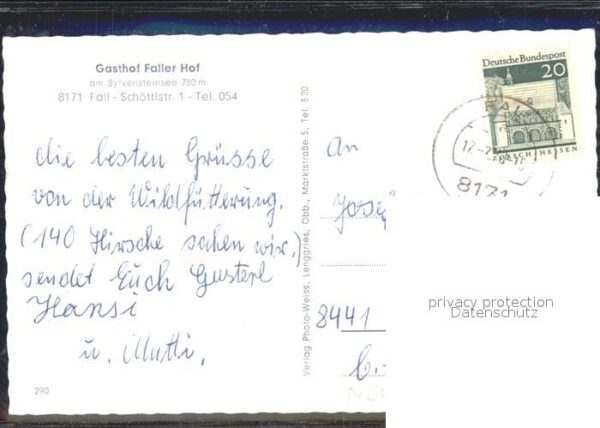 Gasthof Faller Hof
am Sylvensteinsee 780 m
8171 Fall - Schöttlstr. 1 - Tel. 054
die besten Grüsse
von der Wildfütterung.
(140 Hirsche sahen wir.)
sendet Euch Gusterl
Hansi
u. Mutti.
290
Verlag Photo-Weiss, Lenggries, Obb., Marktstraße 5, Tel. 320
Deutsche Bundespost
20
LORSCH/HESSEN
FALL
8171
An
Josef
8441
privacy protection
Datenschutz